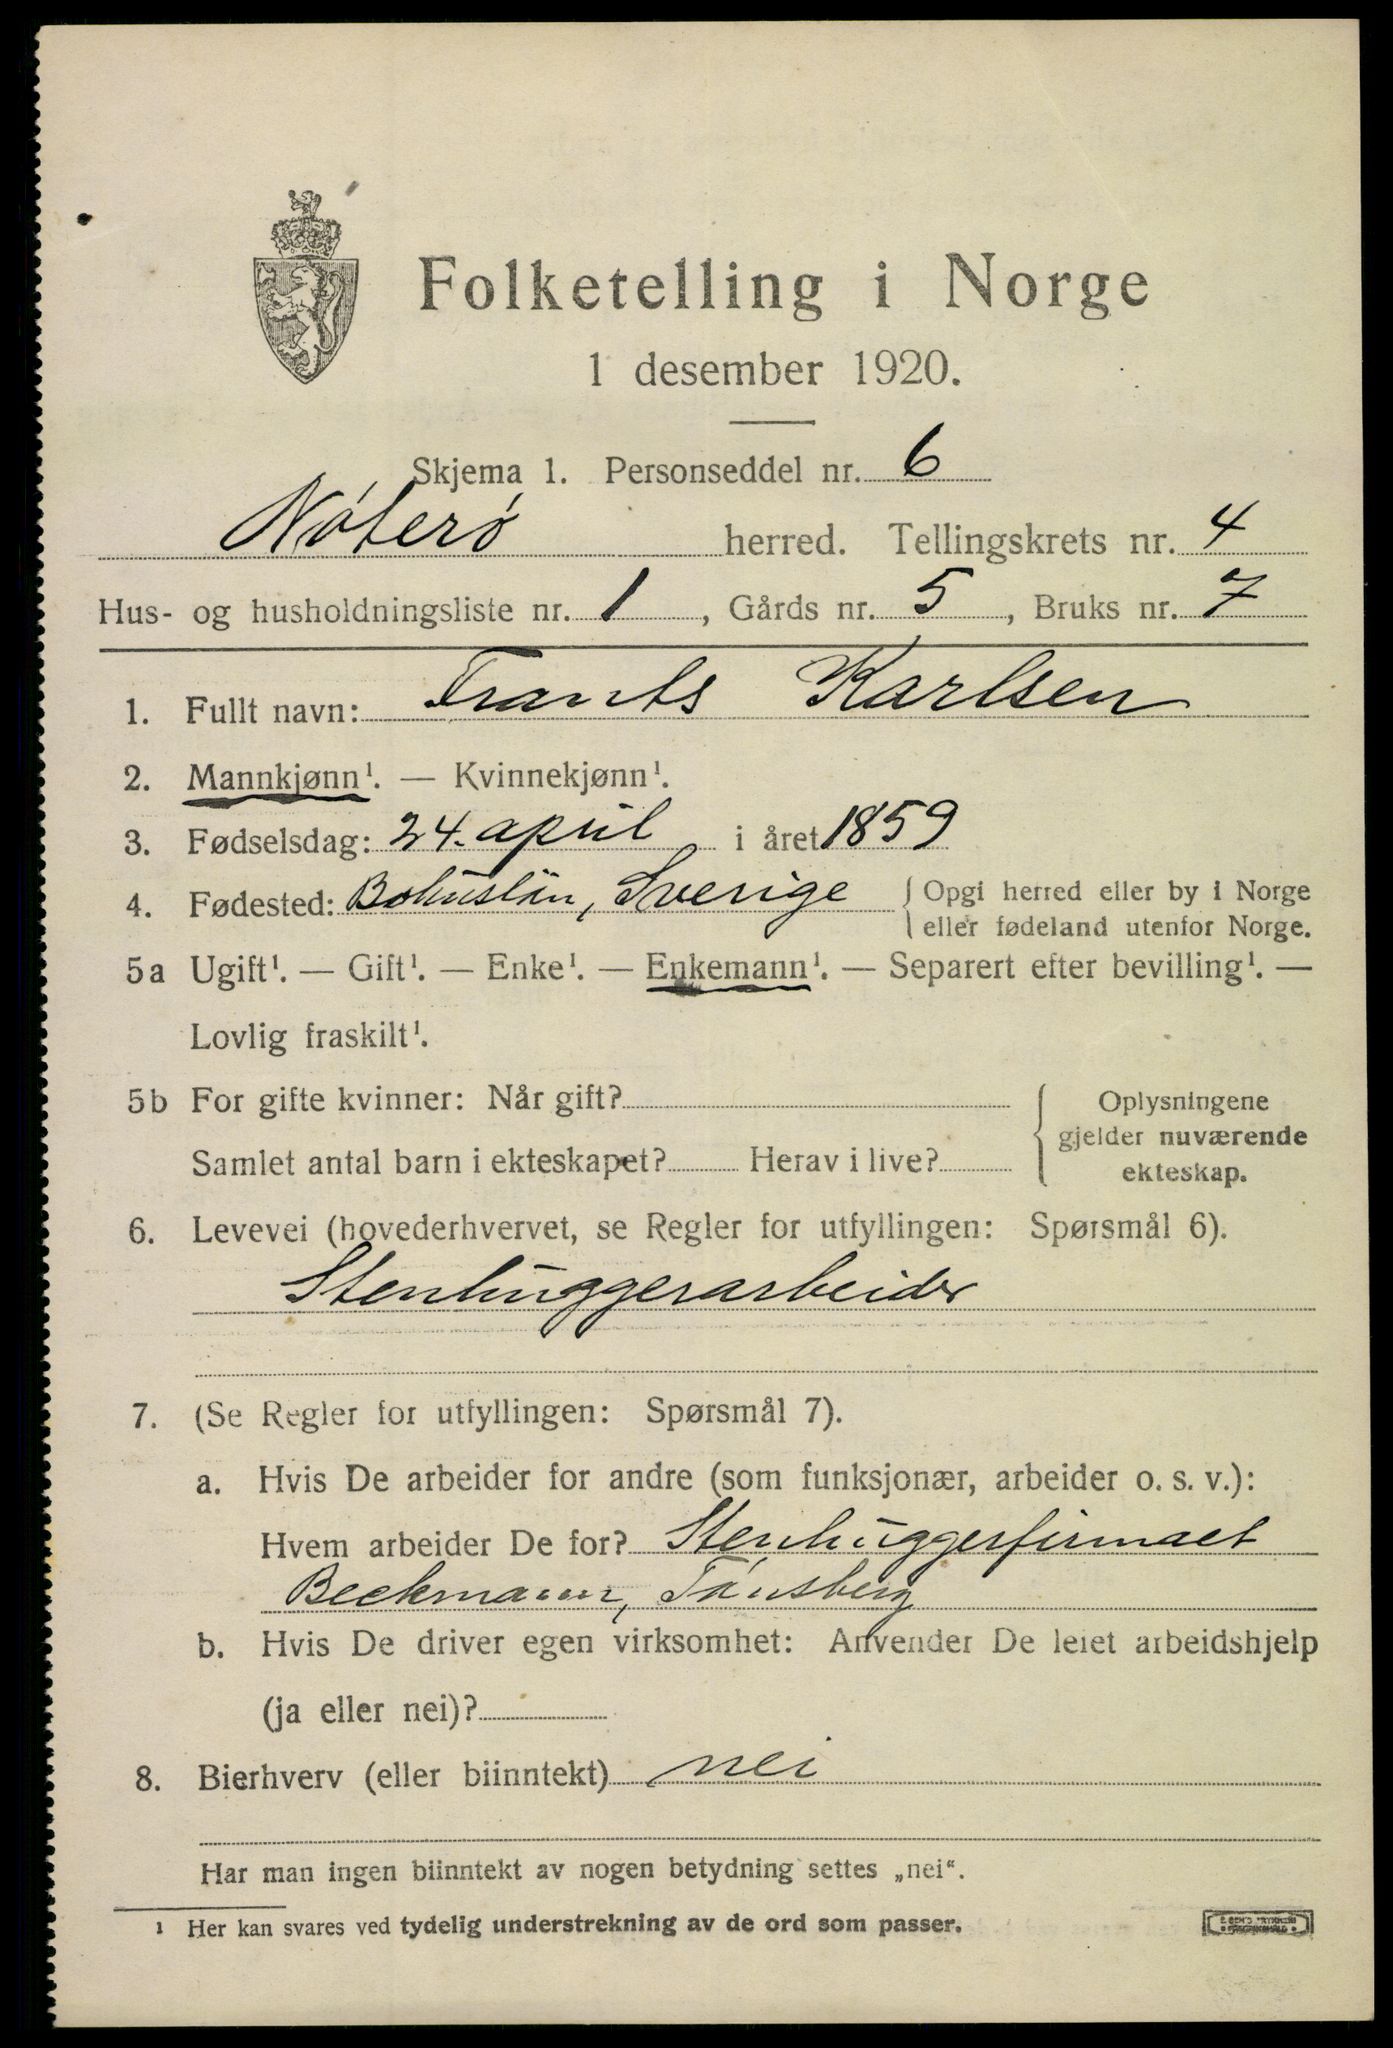 Folketelling i Norge
1 desember 1920.
Skjema 1. Personseddel nr. 6
Nóteró herred. Tellingskrets nr. 4
Hus- og husholdningsliste nr. 1, Gårds nr. 5, Bruks nr. 7
1. Fullt navn: Frants Karlsen
2. Mannkjønn¹. — Kvinnekjønn¹.
3. Fødselsdag: 24. april i året 1859
4. Fødested: Bohuslän, Sverige { Opgi herred eller by i Norge
eller fødeland utenfor Norge.
5a Ugift¹. — Gift¹. — Enke¹. — Enkemann¹. — Separert efter bevilling¹. —
Lovlig fraskilt¹.
5b For gifte kvinner: Når gift? { Oplysningene
gjelder nuværende
Samlet antal barn i ekteskapet? Herav i live? ekteskap.
6. Levevei (hovederhvervet, se Regler for utfyllingen: Spørsmål 6).
Stenhuggerarbeider
7. (Se Regler for utfyllingen: Spørsmål 7).
a. Hvis De arbeider for andre (som funksjonær, arbeider o. s. v.):
Hvem arbeider De for? Stenhuggerfirmaet
Beckmann, Tónsberg
b. Hvis De driver egen virksomhet: Anvender De leiet arbeidshjelp
(ja eller nei)?
8. Bierhverv (eller biinntekt) nei
Har man ingen biinntekt av nogen betydning settes „nei“.
¹ Her kan svares ved tydelig understrekning av de ord som passer.